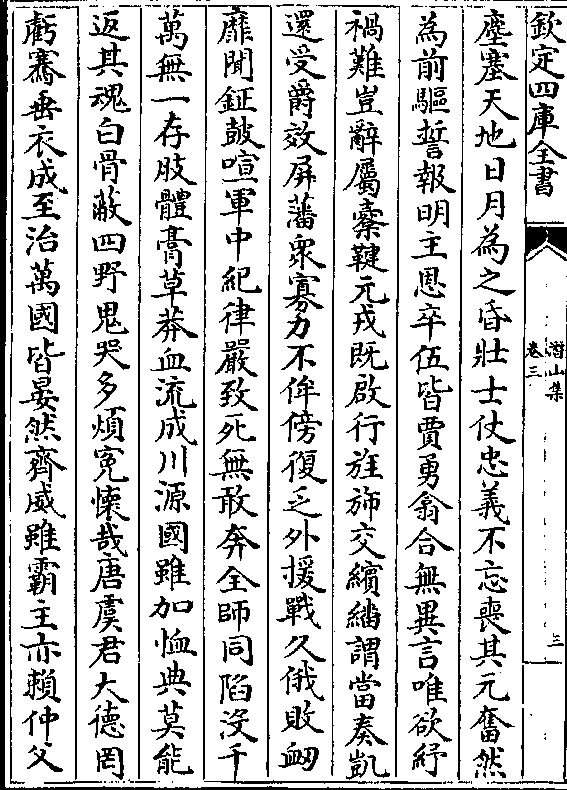 欽定四庫全書
潜山集
卷三
三
塵塞天地日月為之昏壯士仗忠義不忘喪其元奮然
為前驅誓報明主恩卒伍皆賈勇翕合無異言唯欲紓
禍難豈辭屬櫜鞬元戎既啟行旌斾交繽繙謂當奏凱
還受爵效屏藩衆寡力不侔傍復乏外援戰久俄敗衂
靡聞鉦鼓喧軍中紀律嚴致死無敢奔全師同陷沒千
萬無一存肢體膏草莽血流成川源國雖加恤典莫能
返其魂白骨蔽四野鬼哭多煩寃懷哉唐虞君大德罔
虧騫垂衣成至治萬國皆晏然齊威雖霸主亦賴仲父